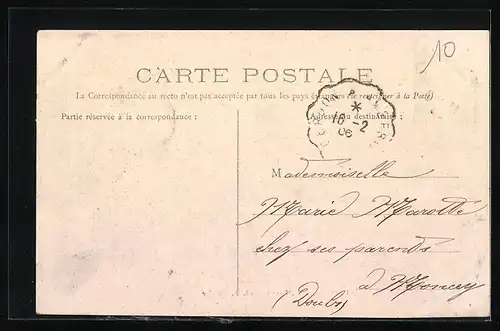 10
CARTE POSTALE
La Correspondance au recto n'est pas acceptée par tous les pays étrangers (se renseigner à la Poste)
Partie réservée à la correspondance :
Adresse du destinataire :
16 -2
06
Mademoiselle
Marie Marotte
chez ses parents
à Moncey
(Doubs)